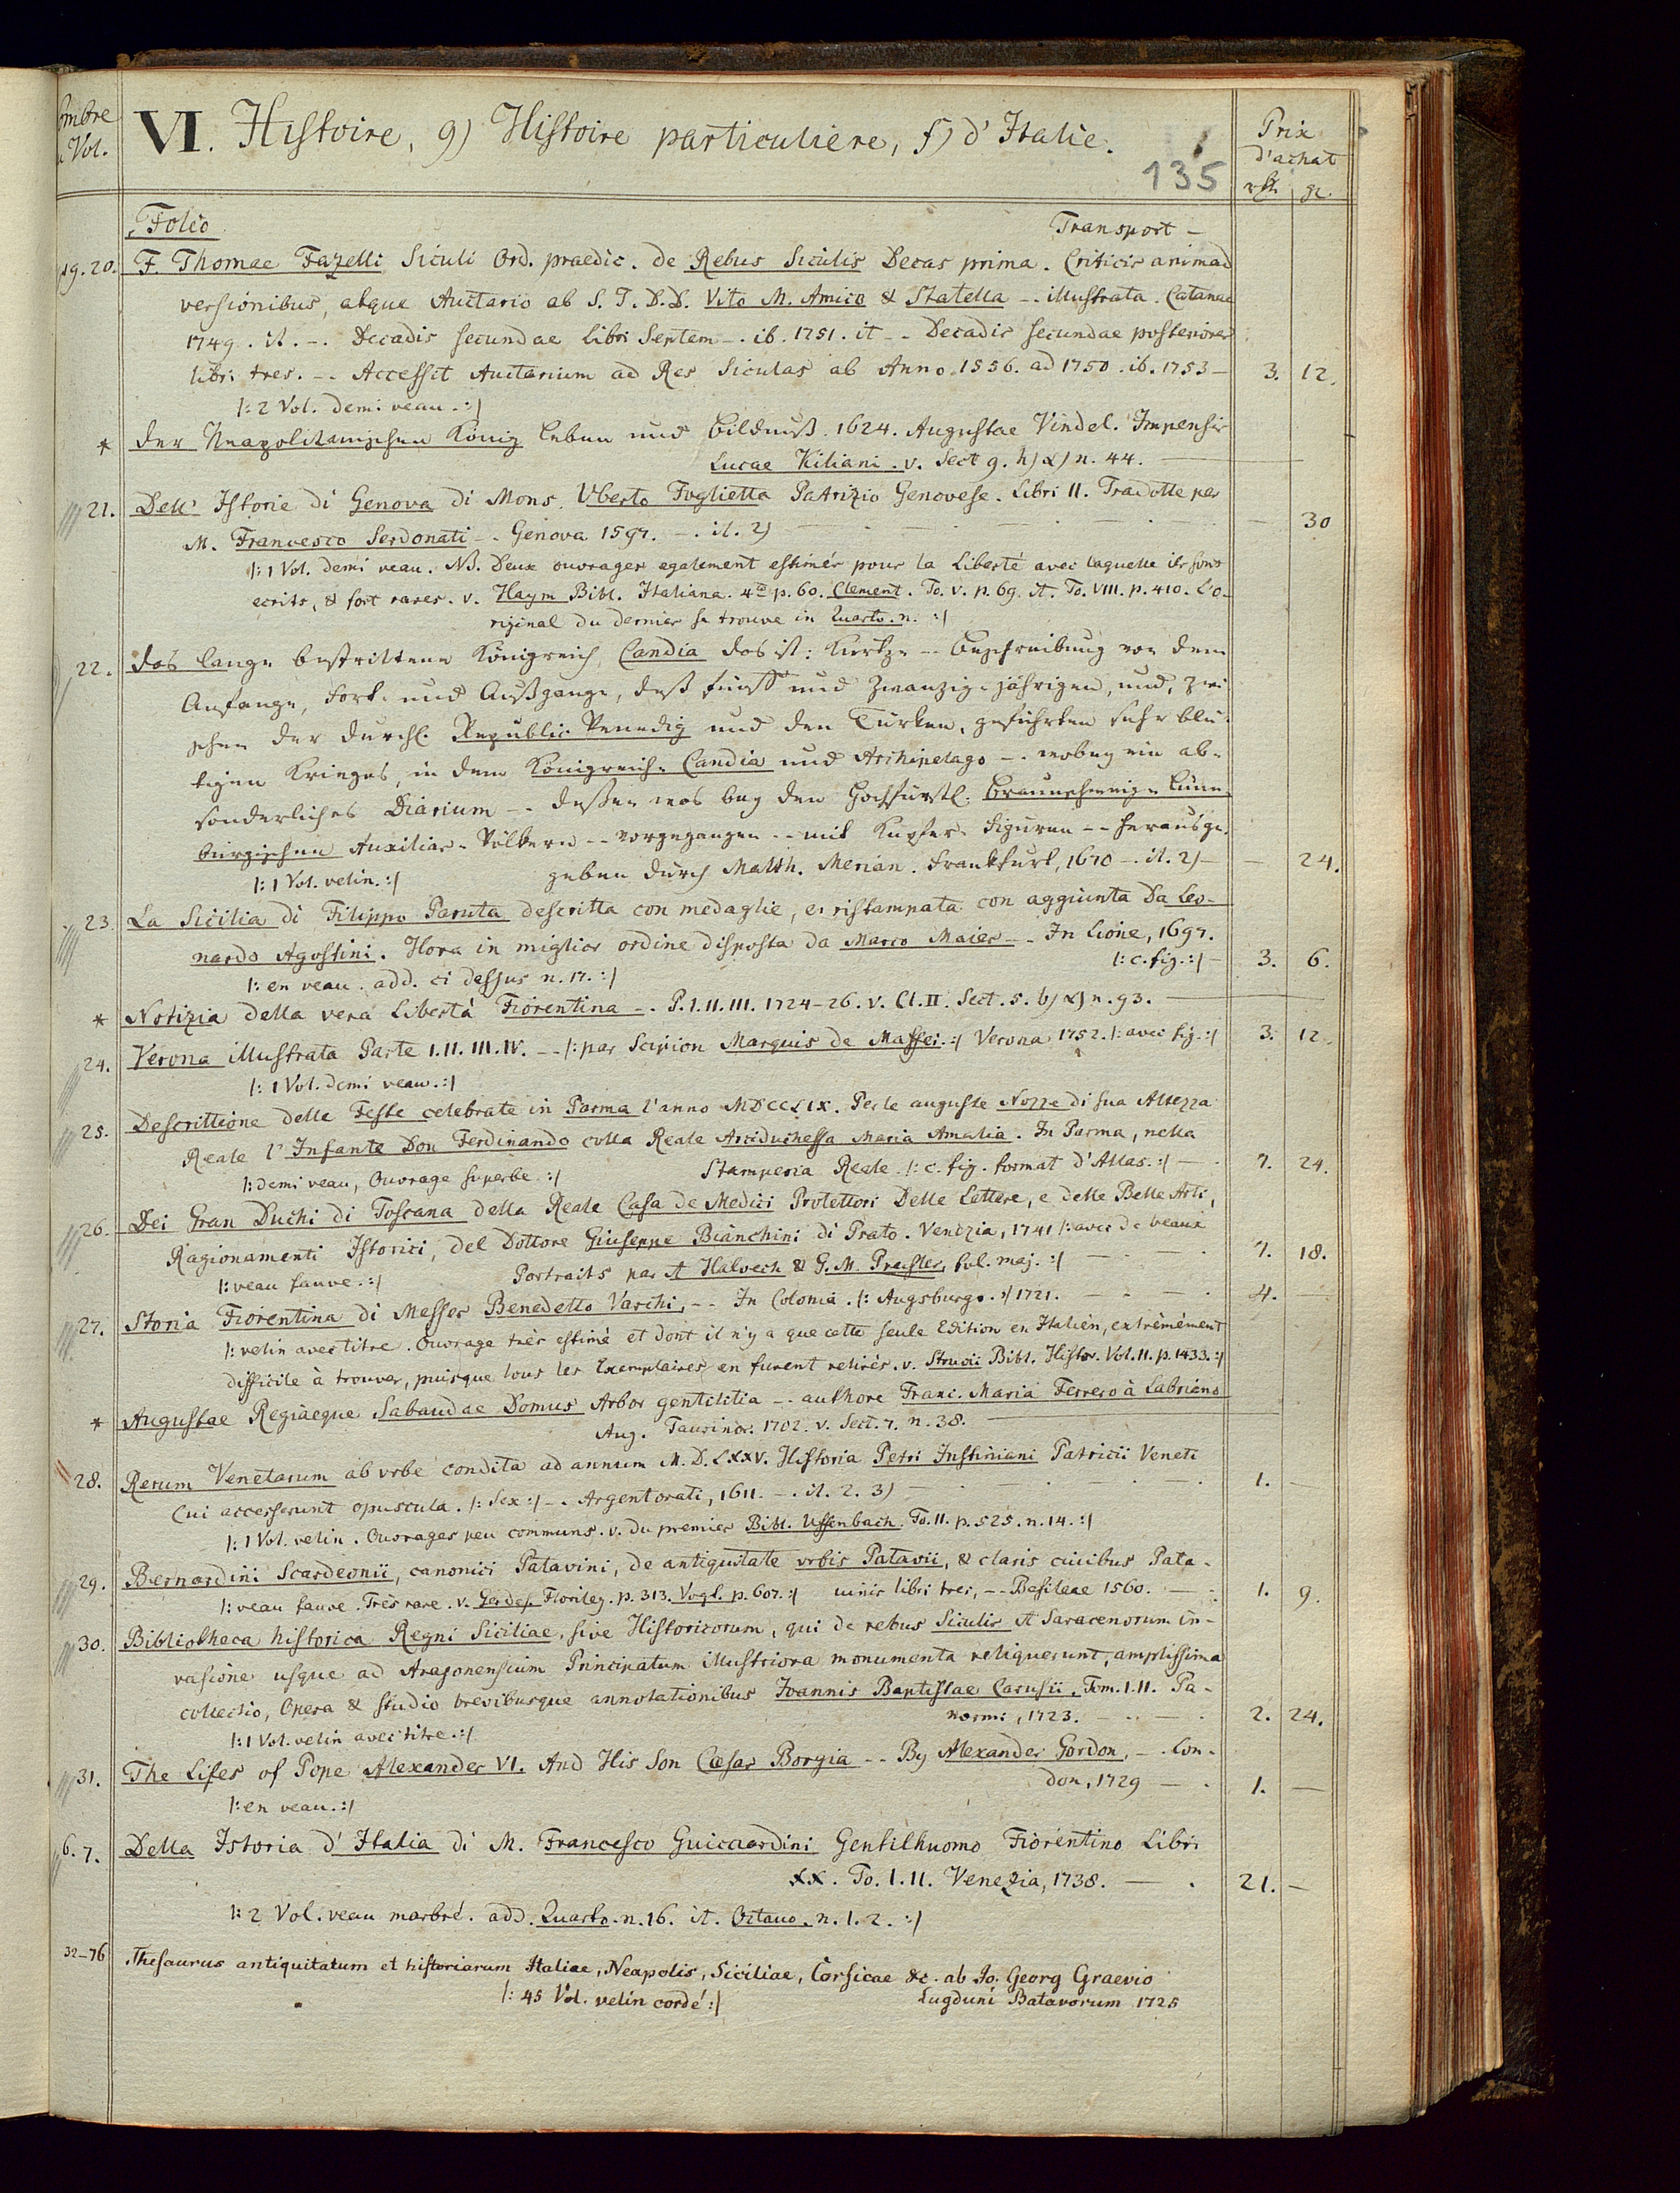 VI. Histoire, 9) Histoire particuliere, f) d'Italie.
Vol.
Prix
d'achat
135
Folio
Transport —
19. 20. F. Thomae Fazelli Siculi Ord. praedic. de Rebus Siculis Decas prima. Criticis animad
versionibus, atque Auctario ab S. T. D. D. Vito M. Amico & Statella -. illustrata. Catanae
1749. it. -. Decadis secundae libri Septem -. ib. 1751. it -. Decadis secundae posteriores
libri tres. -. Accessit Auctarium ad Res Siculas ab Anno 1556. ad 1750. ib. 1753 — 3. 12.
/: 2 Vol. demi veau. :/
* Der Neapolitanischen König leben und bildnuß. 1624. Augustae Vindel. Impensis
Lucae Kiliani. v. Sect 9. h) α) n. 44. —
21. Dell' Istorie di Genova di Mons. Vberto Foglietta Patrizio Genovese. Libri II. Tradotte per
M. Francesco Serdonati -. Genova 1597. -. it. 2) — 30
/: 1 Vol. demi veau. NB. Deux ouvrages egalement estimés pour la Liberté avec laquelle ils sont
ecrits, & fort rares. v. Haym Bibl. Italiana. 4to p. 60. Clement. To. V. p. 69. it. To. VIII. p. 410. L'o-
riginal du dernier se trouve in Quarto. n. :/
22. Das lange bestrittene Königreich Candia das ist: Kurtze -. Beschreibung von dem
Anfange, Fort- und Außgange, deß fünff und zwanzig-jährigen, und, zwi
schen der Durchl. Republic Venedig und den Türken, geführten sehr blu-
tigen Krieges, in dem Königreiche Candia und Archipelago -. wobey ein ab-
sonderliches Diarium -. deßen was bey den Hochfürstl. Braunschweig-Lüne-
burgischen Auxiliar-Völkern -. vorgegangen -. mit Kupfer-Figuren -. herausge-
geben durch Matth. Merian. Frankfurt, 1670 -. it. 2) — 24.
/: 1 Vol. velin. :/
23. La Sicilia di Filippo Paruta descritta con medaglie, e ristampata con aggiunta Da Leo-
nardo Agostini. Hora in miglior ordine disposta da Marco Maier -. In Lione, 1697.
/: c. fig. :/ — 3. 6.
/: en veau. add. ci dessus n. 17. :/
* Notizia della vera Libertà Fiorentina -. P. I. II. III. 1724-26. v. Cl. II. Sect. 5. b) α) n. 93. —
24. Verona illustrata Parte I. II. III. IV. -. /: par Scipion Marquis de Maffei. :/ Verona 1752. /: avec fig. :/ 3. 12.
/: 1 Vol. demi veau. :/
25. Descrittione delle Feste celebrate in Parma l'anno MDCCLIX. Per le auguste Nozze di sua Altezza
Reale l'Infante Don Ferdinando colla Reale Arciduchessa Maria Amalia. In Parma, nella
Stamperia Reale. /: c. fig. format d'Atlas. :/ — 7. 24.
/: demi veau, Ouvrage superbe. :/
26. Dei Gran Duchi di Toscana della Reale Casa de Medici Protettori Delle Lettere, e delle Belle Arti,
Ragionamenti Istorici, del Dottore Giuseppe Bianchini di Prato. Venezia, 1741 /: avec de beaux
Portraits par A Halvech & G. M. Preisler, fol. maj. :/ — 7. 18.
/: veau fauve. :/
27. Storia Fiorentina di Messer Benedetto Varchi, -. In Colonia. /: Augsburgo. :/ 1721. — 4. —
/: velin avec titre. Ouvrage très estimé et dont il n'y a que cette seule Edition en Italien, extrêmément
difficile à trouver, puisque tous les Exemplaires en furent retirés. v. Struvii Bibl. Histor. Vol. II. p. 1433. :/
* Augustae Regiaeque Sabaudae Domus Arbor gentilitia -. authore Franc. Maria Ferrero à Labriano
Aug. Taurinor. 1702. v. Sect. 7. n. 38. —
28. Rerum Venetarum ab vrbe condita ad annum M.D.LXXV. Historia Petri Iustiniani Patricii Veneti
Cui accesserunt opuscula. /: Sex :/ -. Argentorati, 1611. -. it. 2. 3) — 1. —
/: 1 Vol. velin. Ouvrages peu communs. v. du premier Bibl. Uffenbach. To. II. p. 525. n. 14. :/
29. Bernardini Scardeonii, canonici Patavini, de antiquitate vrbis Patavii, & claris ciuibus Pata-
/: veau fauve. Très rare. v. Gerdes. Florileg. p. 313. Vogt. p. 607. :/ uinis libri tres, -. Basileae 1560. — 1. 9.
30. Bibliotheca historica Regni Siciliae, sive Historicorum, qui de rebus Siculis A Saracenorum in-
vasione usque ad Aragonensium Principatum illustriora monumenta reliquerunt, amplissima
collectio, Opera & studio brevibusque annotationibus Ioannis Baptistae Carusii. Tom. I. II. Pa-
normi, 1723. — 2. 24.
/: 1 Vol. velin avec titre. :/
31. The Lifes of Pope Alexander VI. And His Son Cæsar Borgia -. By Alexander Gordon, -. Lon-
don, 1729 — 1. —
/: en veau. :/
6. 7. Della Istoria d'Italia di M. Francesco Guicciardini Gentilhuomo Fiorentino Libri
XX. To. I. II. Venezia, 1738. — 21. —
/: 2 Vol. veau marbré. add. Quarto. n. 16. it. Octavo. n. 1. 2. :/
32-76 Thesaurus antiquitatum et historiarum Italiae, Neapolis, Siciliae, Corsicae &c. ab Jo. Georg Graevio
/: 45 Vol. velin cordé :/ Lugduni Batavorum 1725